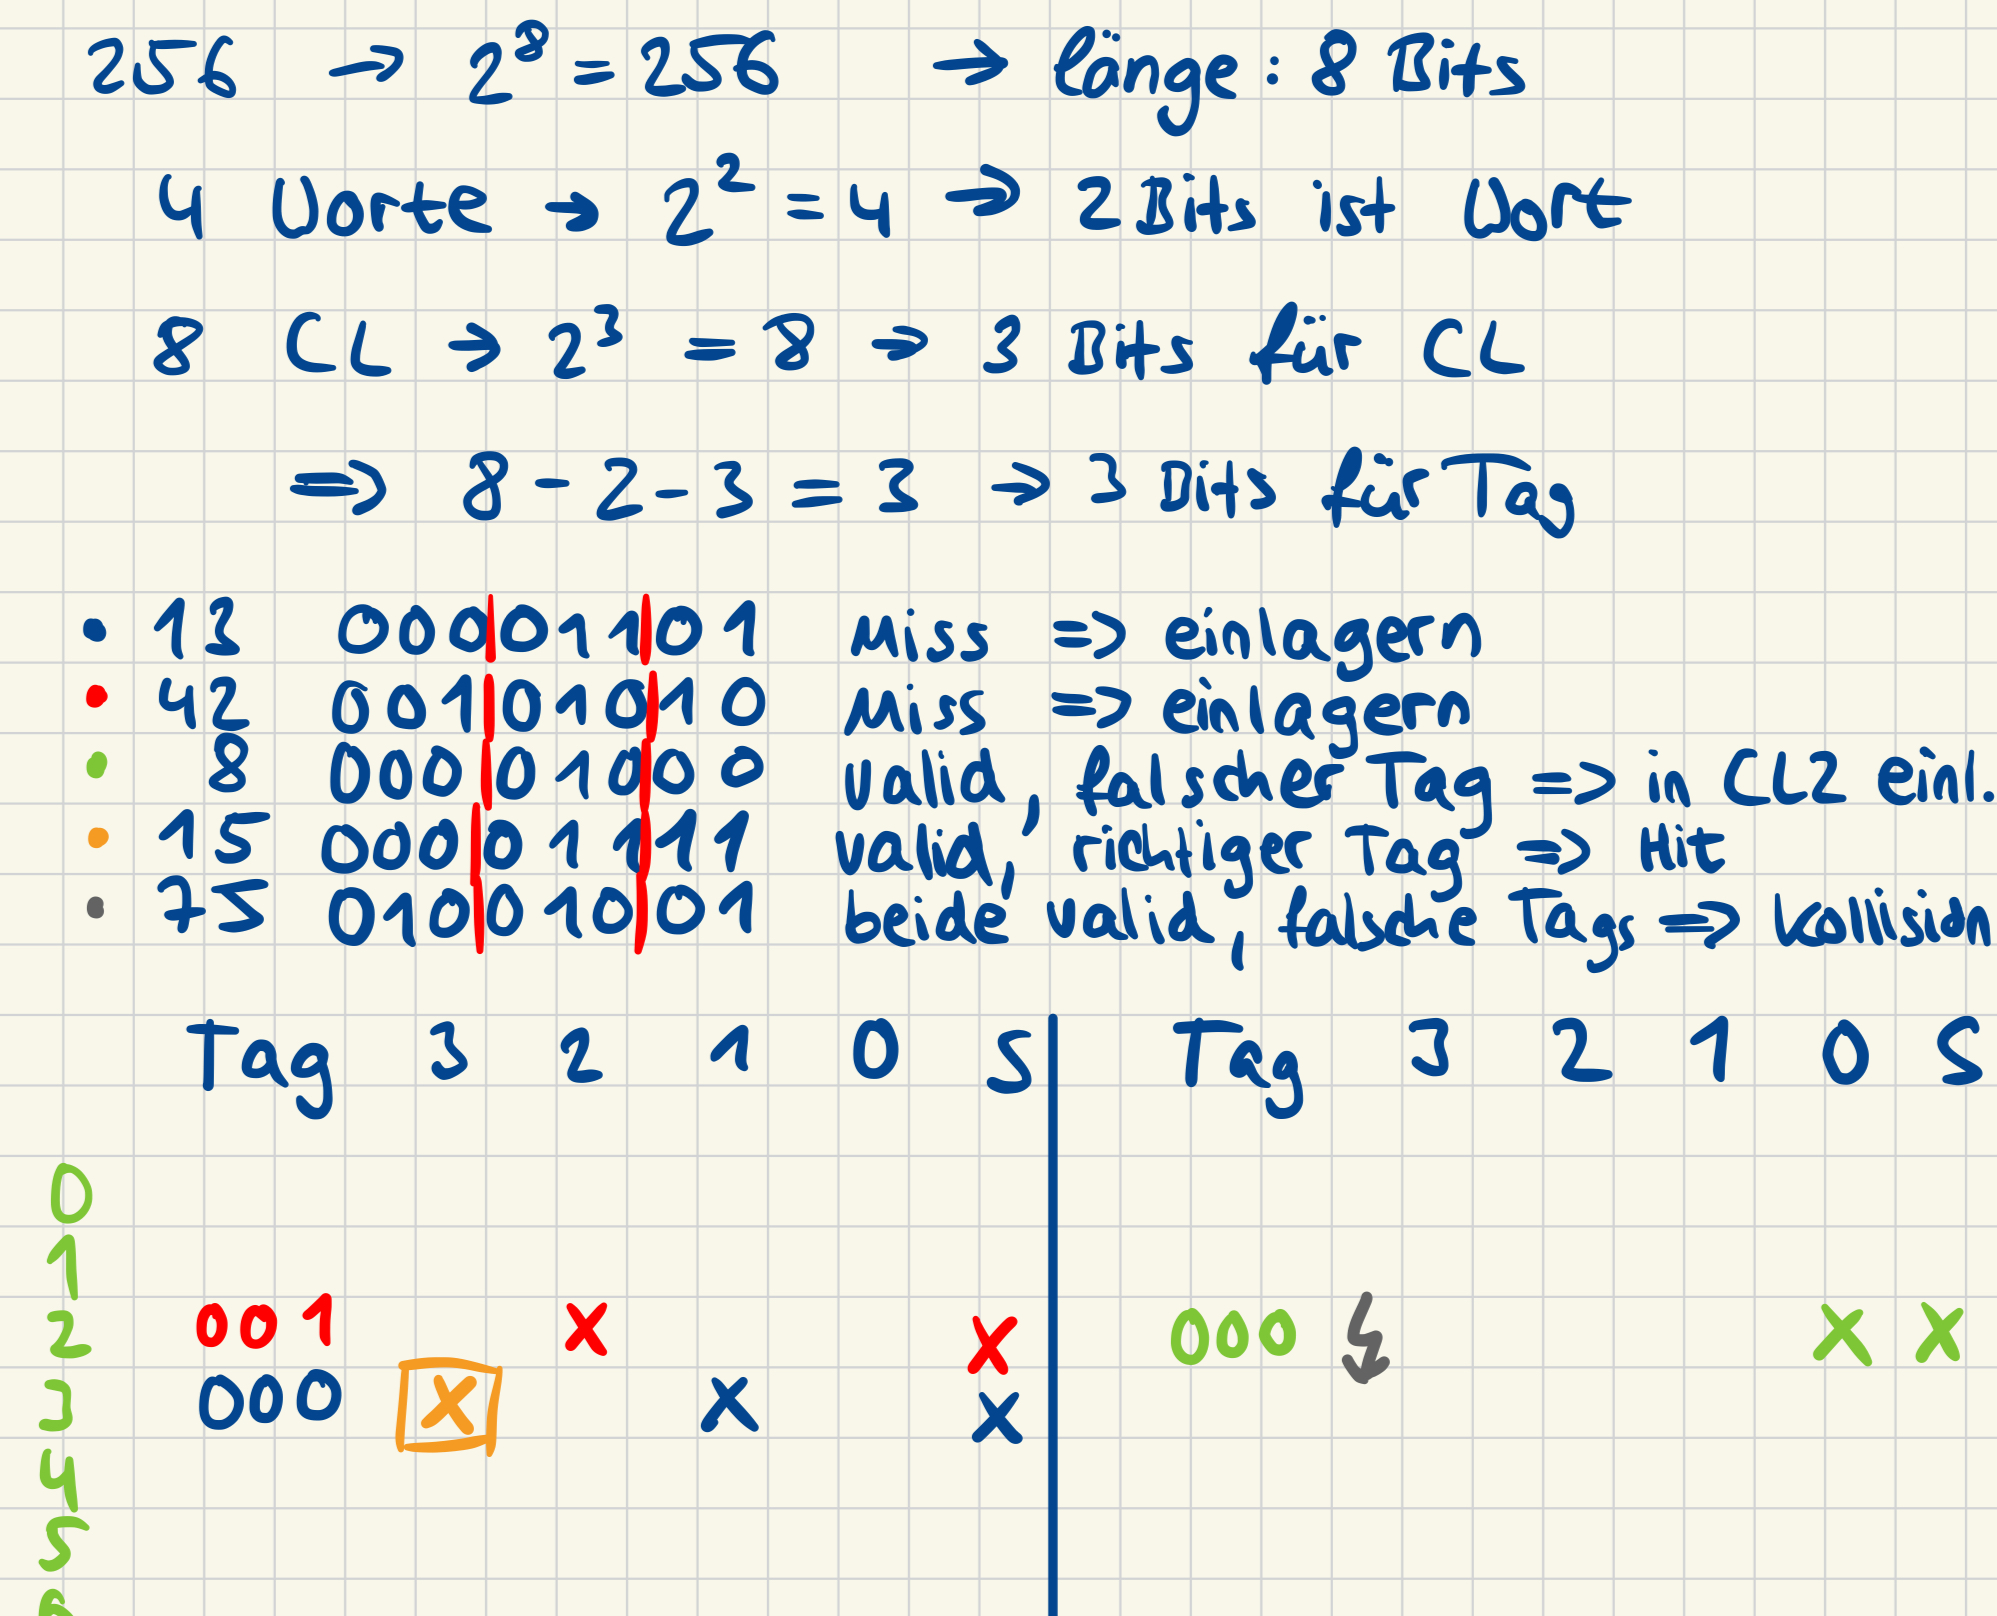 256 → 2⁸ = 256 → länge: 8 Bits
4 Worte → 2² = 4 → 2 Bits ist Wort
8 CL → 2³ = 8 → 3 Bits für CL
⇒ 8 - 2 - 3 = 3 → 3 Bits für Tag
• 13 000|011|01 Miss => einlagern
• 42 001|010|10 Miss => einlagern
• 8 000|010|00 valid, falscher Tag => in CL2 einl.
• 15 000|011|11 valid, richtiger Tag => Hit
• 75 010|010|01 beide valid, falsche Tags => Kollision
Tag 3 2 1 0 S | Tag 3 2 1 0 S
0
1
2 001 x x 000 x x
3 000 x x x
4
5